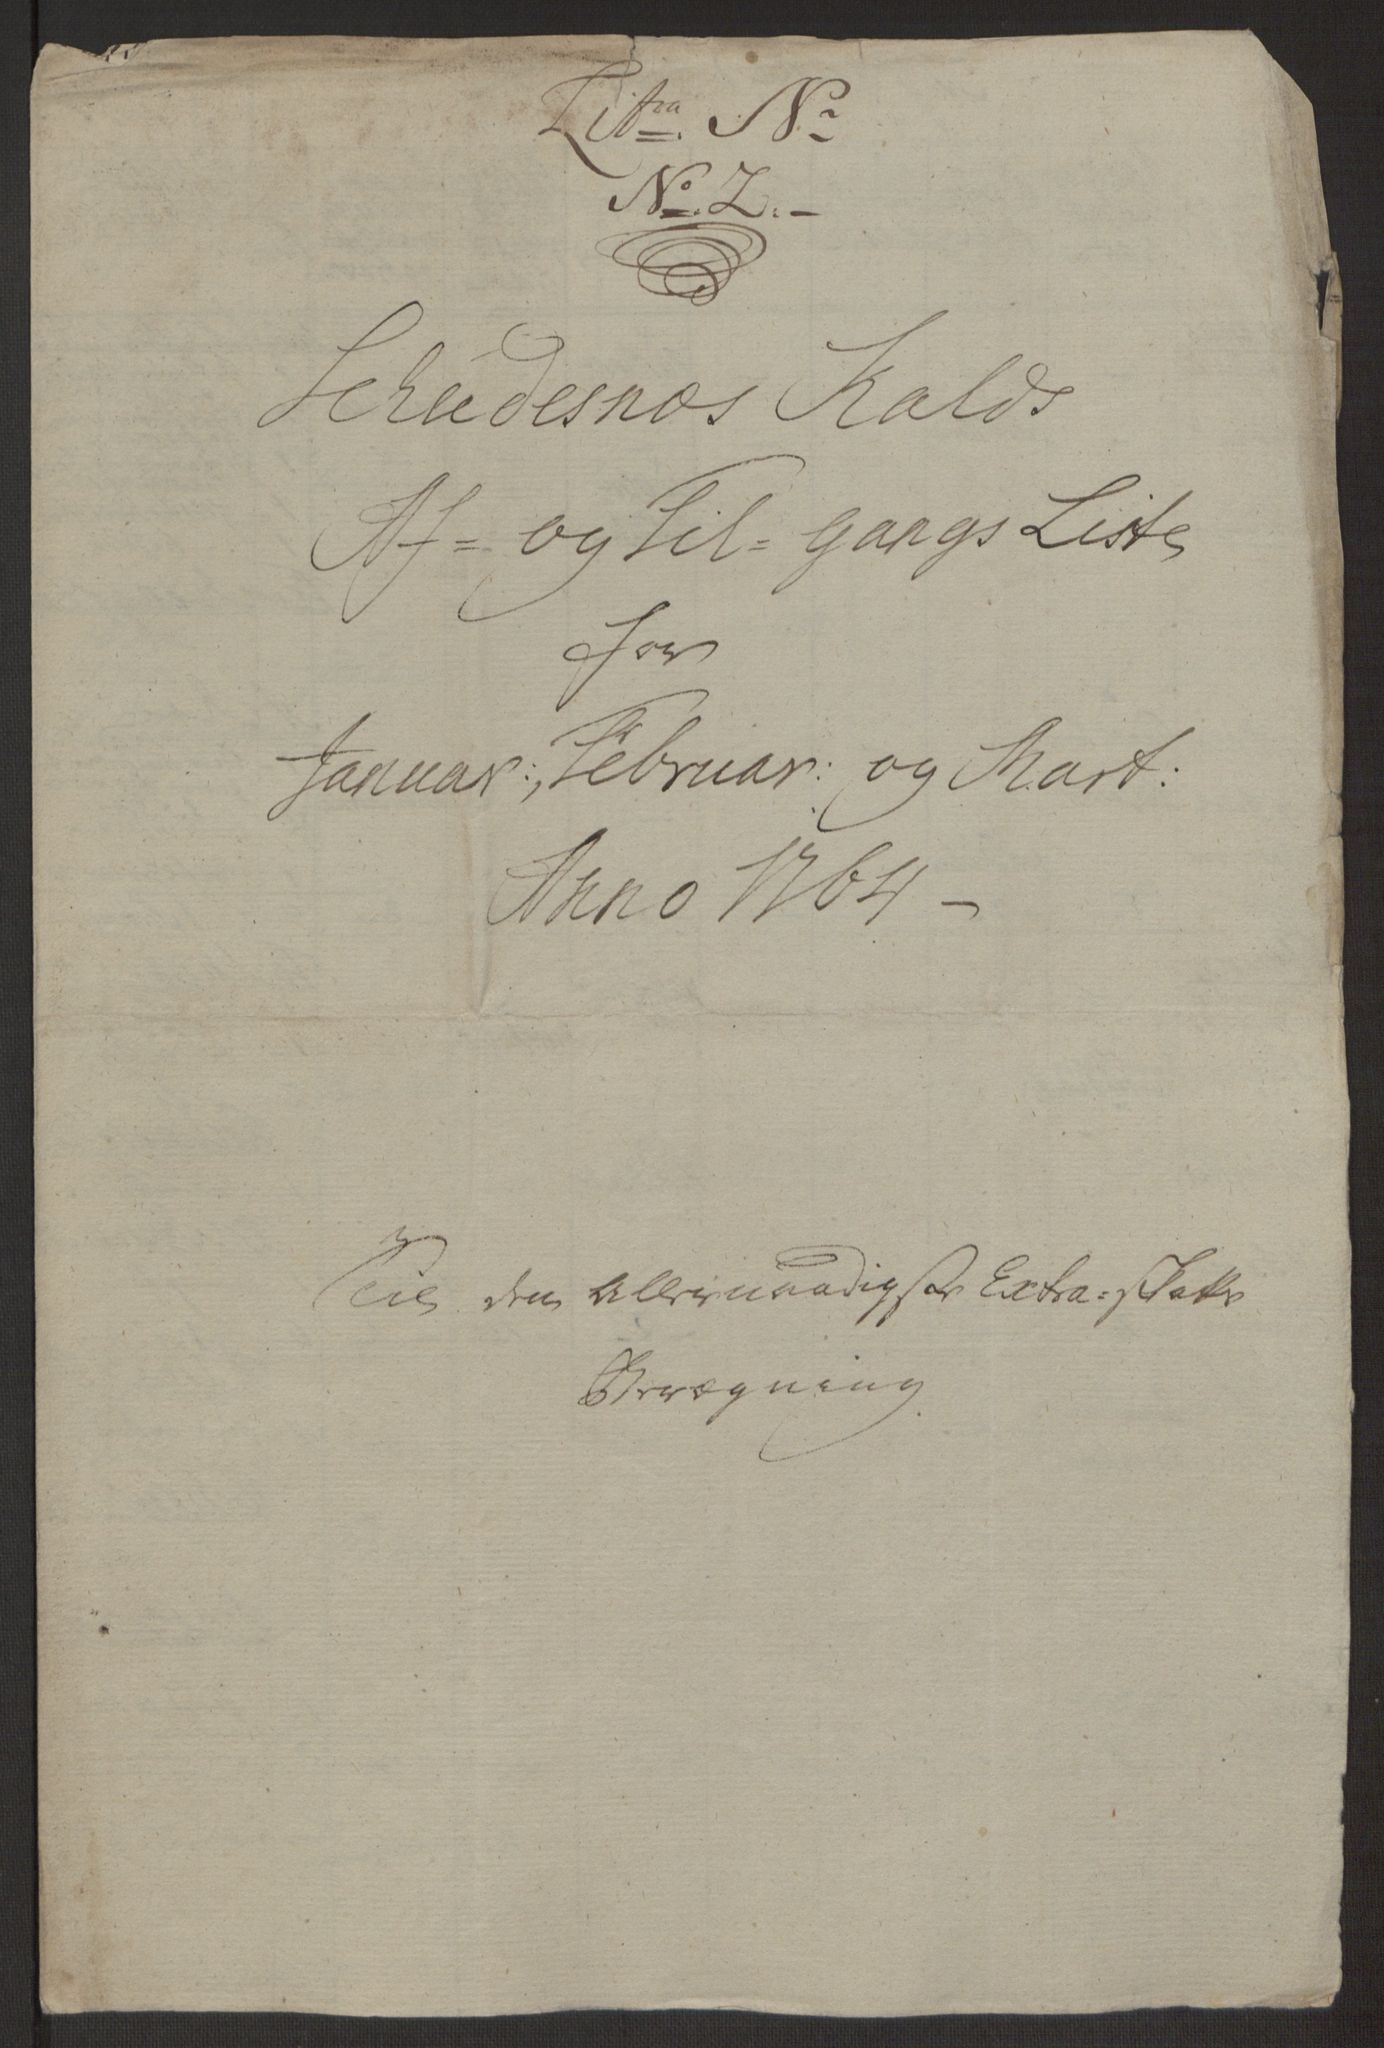 Lit:ra N:
No: 2. -
Schudesnæs Kalds
Af= og Til= gangs Liste
for
Januar:, Februar: og Mart:
Anno 1764 -
Til den allernaadigste Extra=Skatts
Beregning